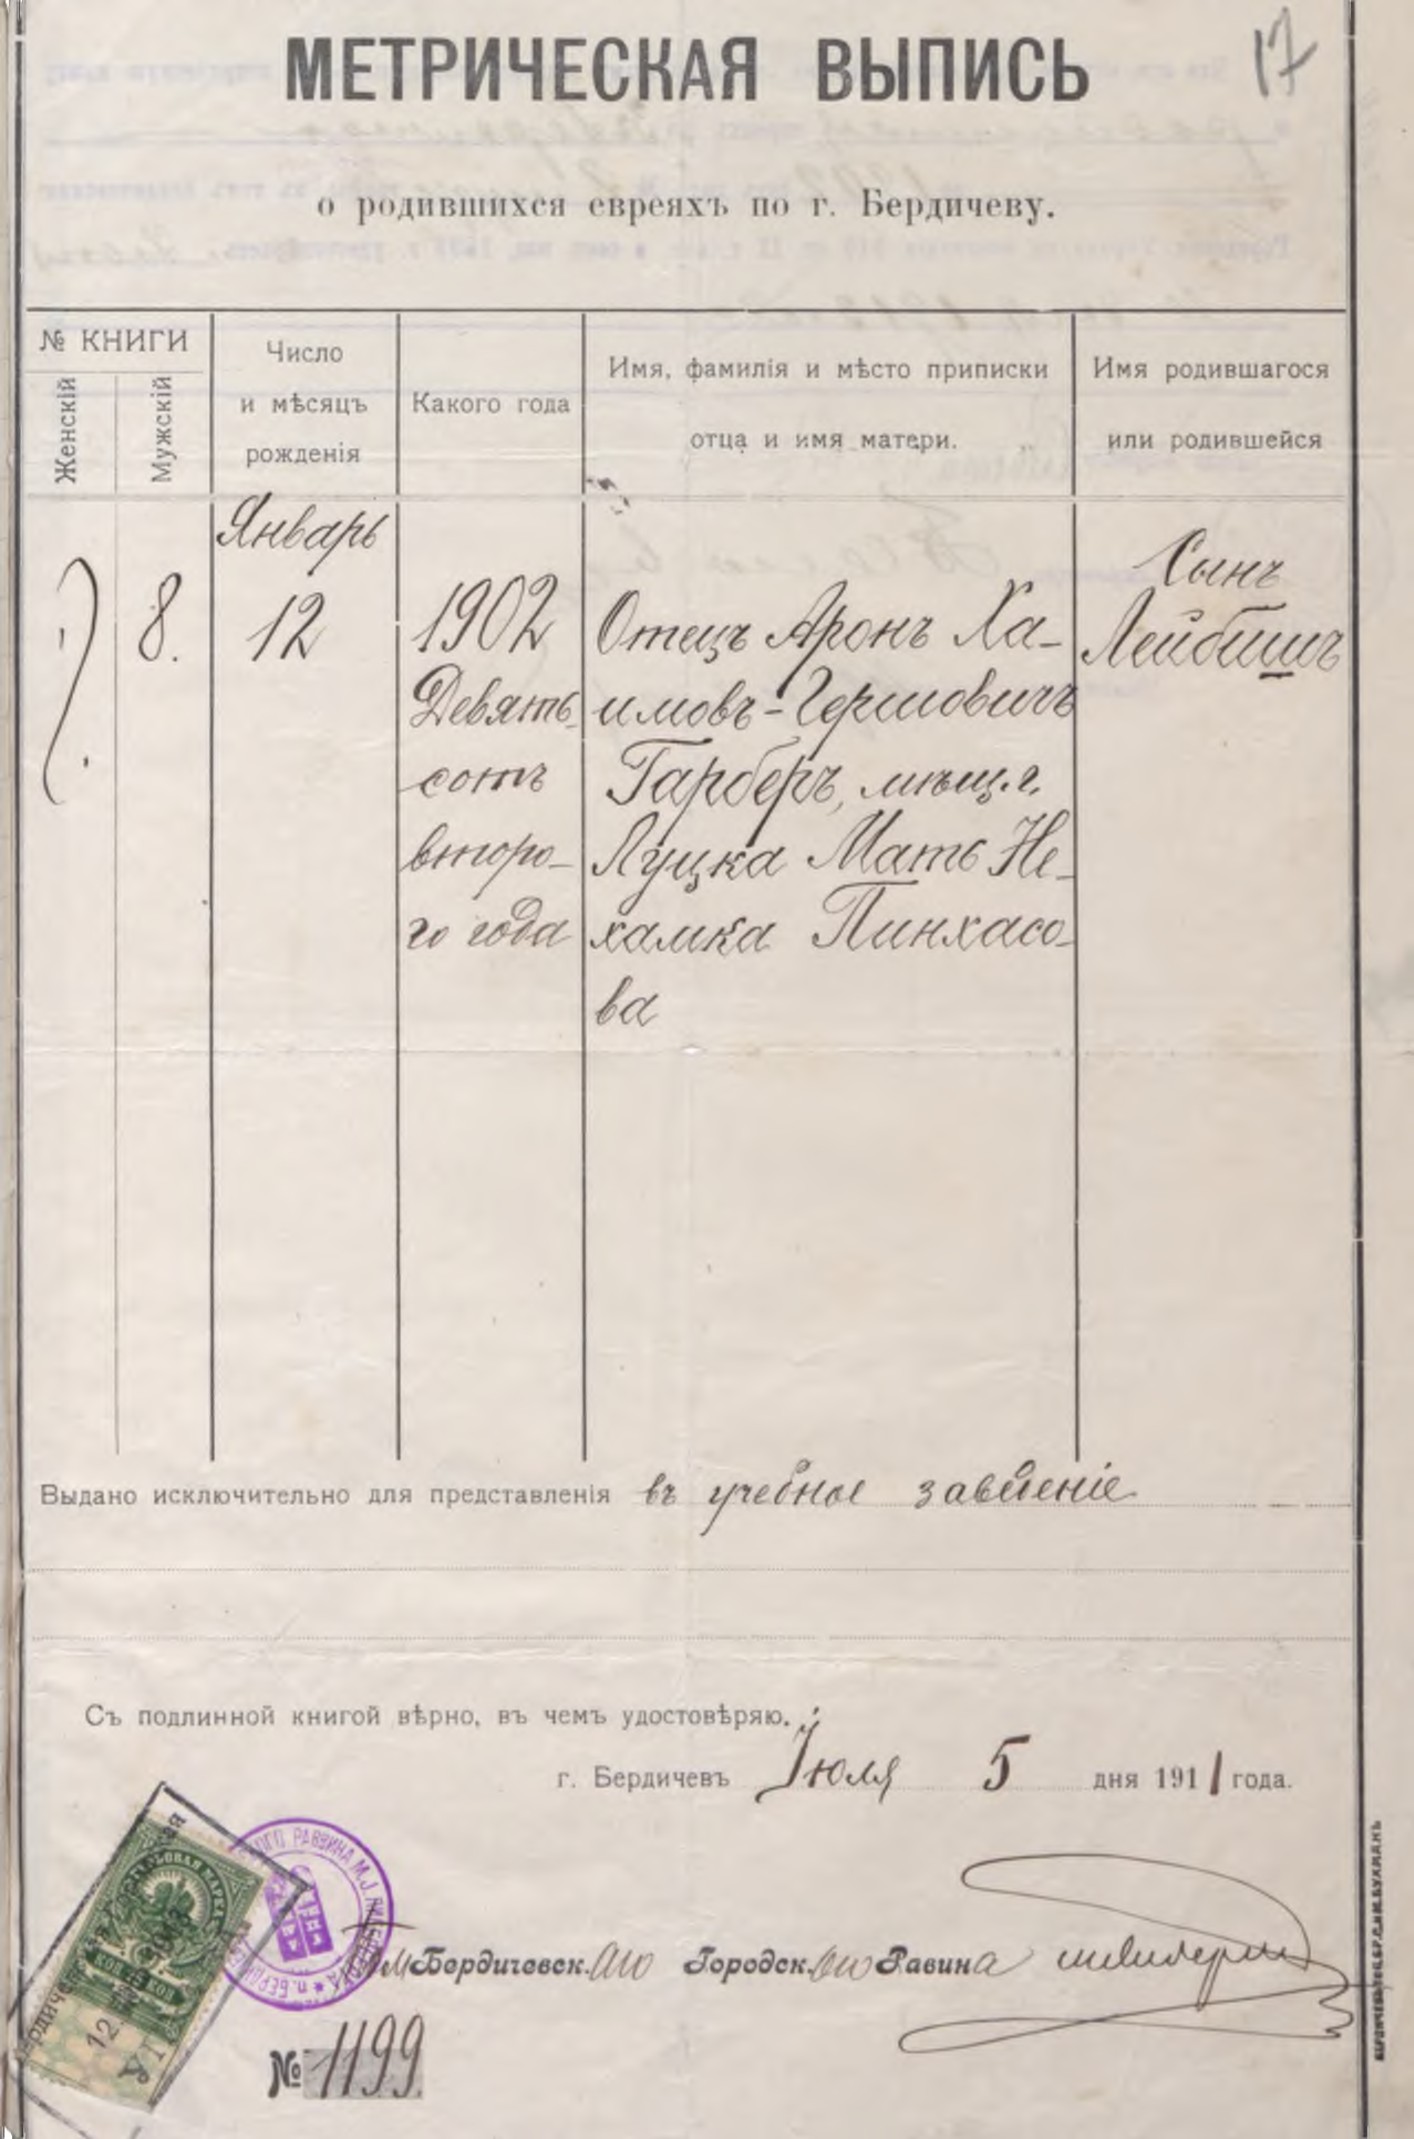 17
МЕТРИЧЕСКАЯ ВЫПИСЬ
о родившихся евреяхъ по г. Бердичеву.
№ КНИГИ
Женскій
Мужскій
Число
и мѣсяцъ
рожденія
Какого года
Имя, фамилія и мѣсто приписки
отца и имя матери.
Имя родившагося
или родившейся
8.
Январь
12
1902
Девять-
сотъ
второ-
го года
Отецъ Аронъ Ха-
имовъ-Гершовичъ
Гарберъ, мѣщ. г.
Луцка Мать Не-
хамка Пинхасо-
ва
Сынъ
Лейбишъ
Выдано исключительно для представленія въ учебное заведеніе
Съ подлинной книгой вѣрно, въ чемъ удостовѣряю.
г. Бердичевъ Іюля 5 дня 1911 года.
Бердичевск.аго Городск.ого Равина
№ 1199
ГЕРБОВАЯ МАРКА
РАВВИНА М.